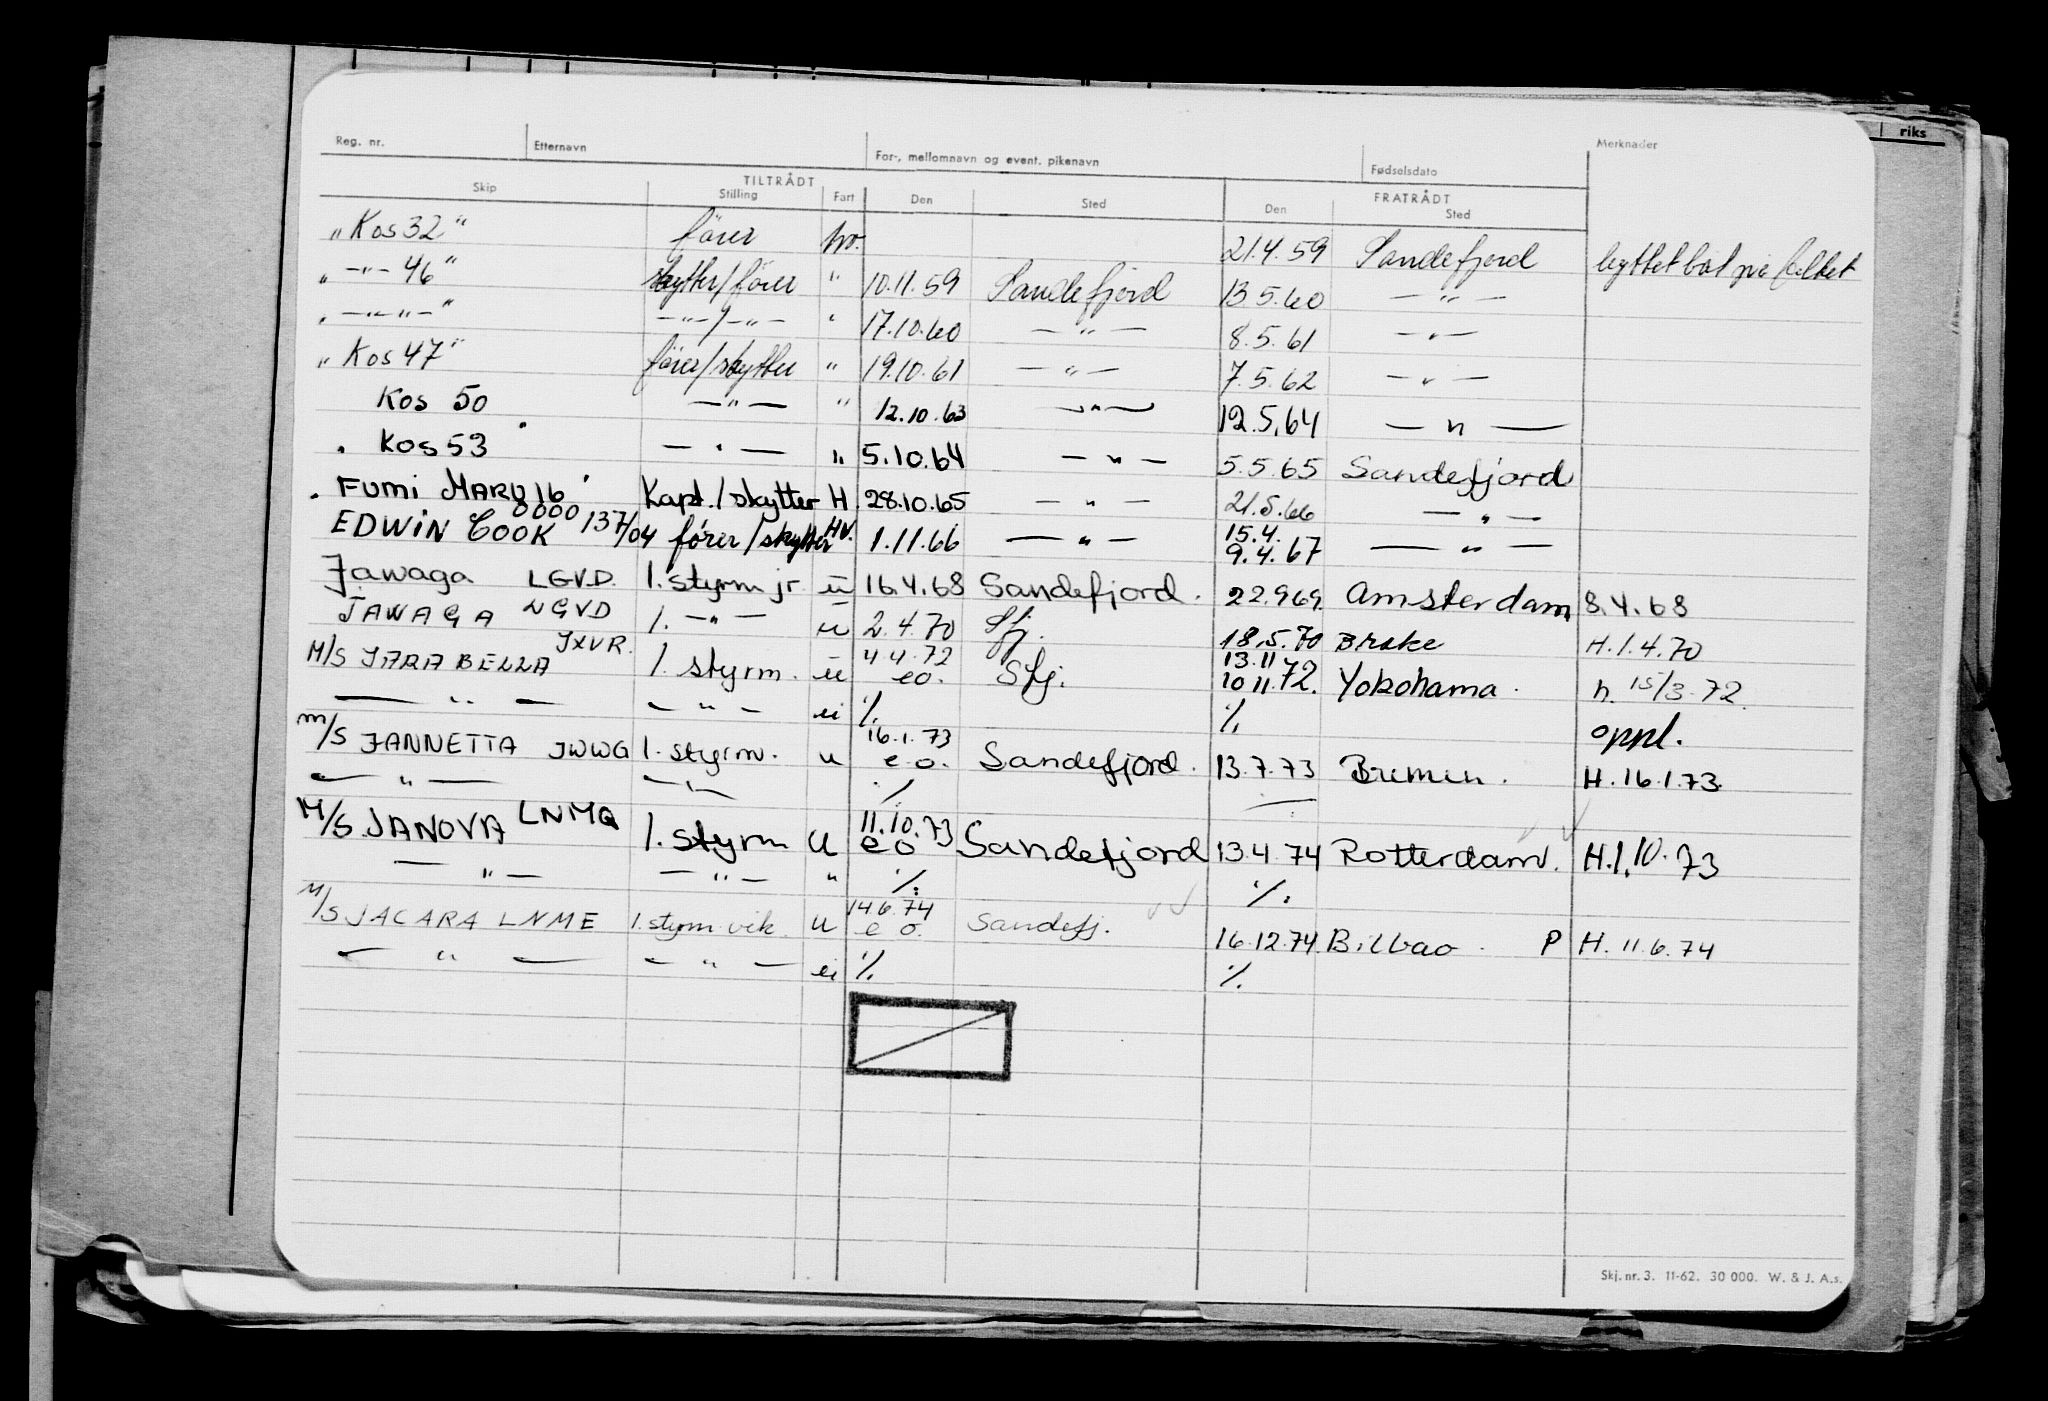 riks
Reg. nr. Etternavn For-, mellomnavn og event. pikenavn Fødselsdato Merknader
TILTRÅDT FRATRÅDT
Skip Stilling Fart Den Sted Den Sted
„Kos 32" fører hv. 21.4.59 Sandefjord byttet båt på feltet
„ -"- 46" skytter/fører " 10.11.59 Sandefjord 13.5.60 -"-
-"-"-" -"-/-"- " 17.10.60 -"- 8.5.61 -"-
„Kos 47" fører/skytter " 19.10.61 -"- 7.5.62 -"-
Kos 50 -"- " 12.10.63 -"- 12.5.64 -"-
Kos 53 -"- " 5.10.64 -"- 5.5.65 Sandefjord
Fumi MARU 16 Kapt./skytter H 28.10.65 -"- 21.5.66 -"-
0000 137/04 15.4.
EDWIN COOK fører/skytter HV. 1.11.66 -"- 9.4.67 -"-
Jawaga LGVD. 1. styrm jr u 16.4.68 Sandefjord. 22.9.69. Amsterdam 8.4.68
JAWAGA LGVD 1. -"- u 2.4.70 Sfj. 18.5.70 Brake H.1.4.70
JXVR. 4 4.72 13.11
M/S JARABELLA 1. styrm. u eo. Sfj. 10 11.72. Yokohama. h. 15/3.72.
-"- -"- ei ./. ./. oppl.
16.1.73
M/S JANNETTA JWWG 1. styrm. u e.o. Sandefjord. 13.7.73 Bremen. H.16.1.73.
-"- -"- ./.
11.10.73
M/S. JANOVA LNMQ 1. styrm U eo Sandefjord 13.4.74 Rotterdam. H.1.10.73
-"- -"- " ./. ./.
14.6.74
M/S JACARA LNME 1. styrm vik. U e o. Sandefj. 16.12.74. Bilbao. P H. 11.6.74
-"- -"- ei ./. ./.
Skj. nr. 3. 11-62. 30 000. W. & J. A.s.